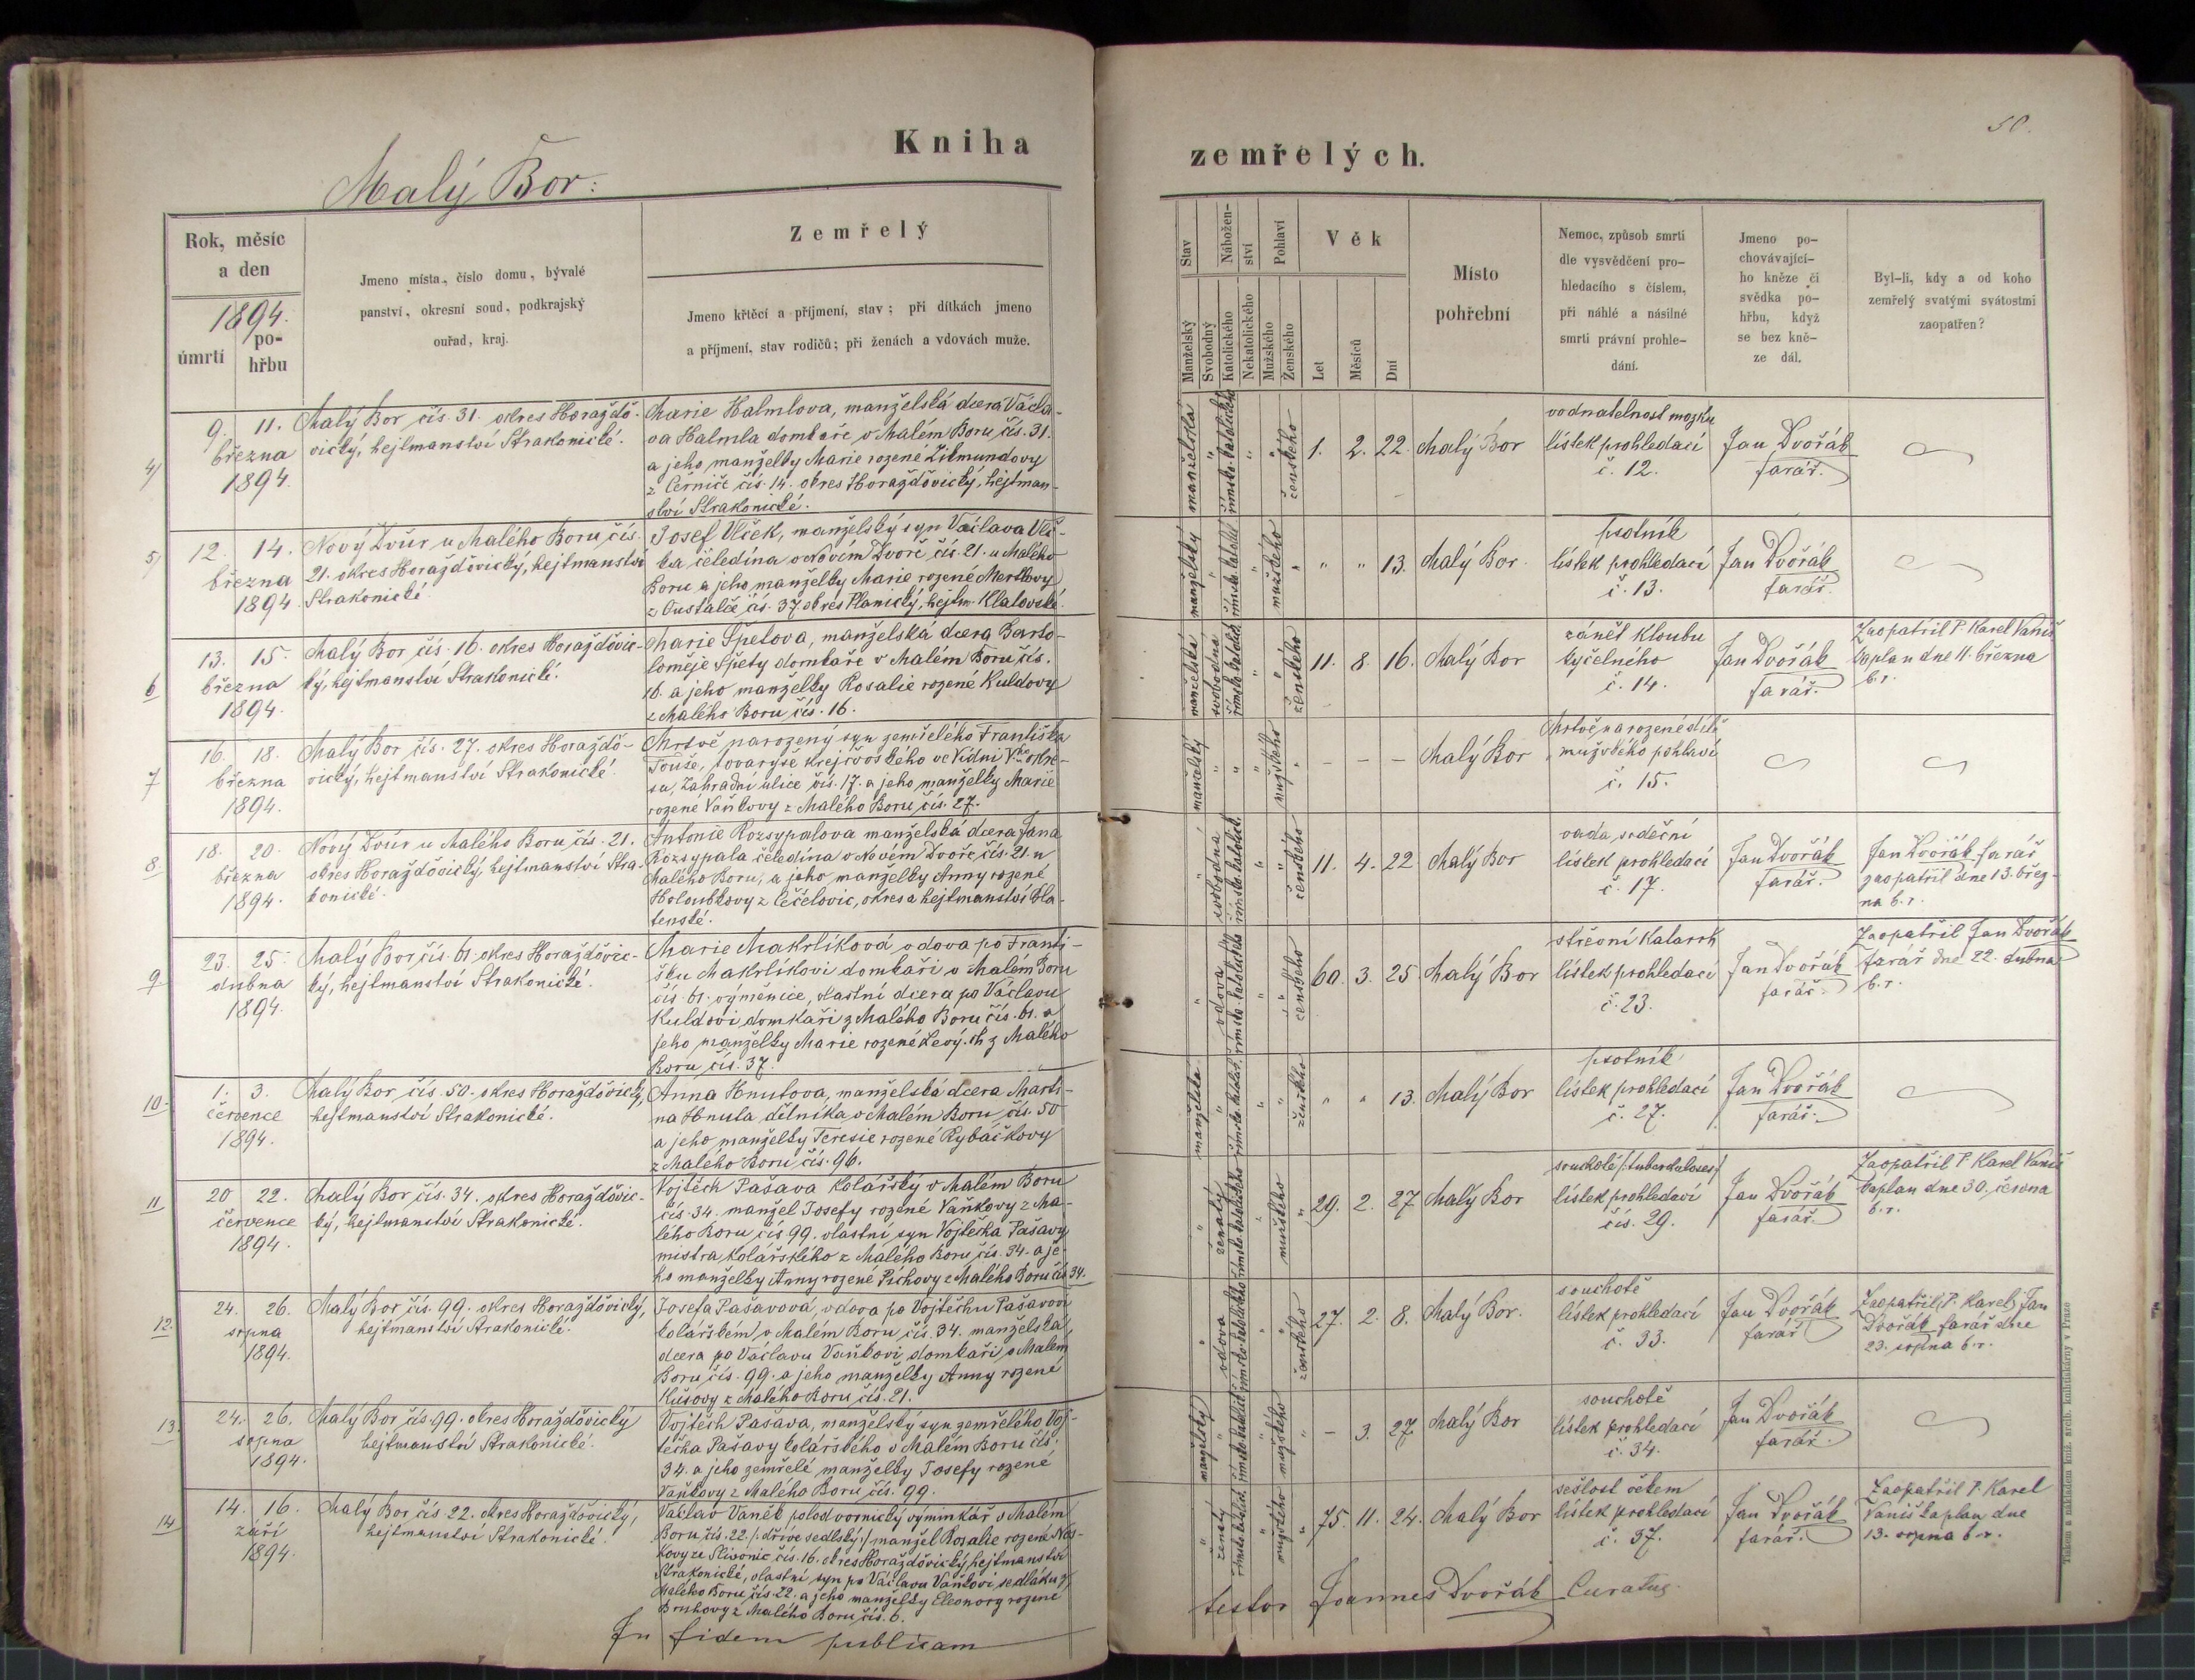 50.
Kniha
zemřelých.
Malý Bor:
Rok, měsíc
a den
1894.
úmrtí
po-
hřbu
Jmeno místa, číslo domu, bývalé
panství, okresní soud, podkrajský
ouřad, kraj.
Zemřelý
Jmeno křtěcí a příjmení, stav; při dítkách jmeno
a příjmení, stav rodičů; při ženách a vdovách muže.
Stav
Manželský
Svobodný
Nábožen-
ství
Katolického
Nekatolického
Pohlaví
Mužského
Ženského
Věk
Let
Měsíců
Dní
Místo
pohřební
Nemoc, způsob smrti
dle vysvědčení pro-
hledacího s číslem,
při náhlé a násilné
smrti právní prohle-
dání.
Jmeno po-
chovávající-
ho kněze či
svědka po-
hřbu, když
se bez kně-
ze dál.
Byl-li, kdy a od koho
zemřelý svatými svátostmi
zaopatřen?
4)
9. 11.
března
1894.
Malý Bor čís. 31. okres Horažďo-
vický, hejtmanství Strakonické.
Marie Halmlova, manželská dcera Václa-
va Halmla domkaře v Malém Boru čís. 31.
a jeho manželky Marie rozené Zikmundovy
z Černíče čís. 14. okres Horažďovický, hejtman-
ství Strakonické.
manželská
"
římsko-katolické
"
"
ženského
1. 2. 22.
Malý Bor
vodnatelnost mozku
lístek prohledací
č. 12.
Jan Dvořák
farář.
5)
12. 14.
března
1894.
Nový Dvůr u Malého Boru čís.
21. okres Horažďovický, hejtmanství
Strakonické.
Josef Vlček, manželský syn Václava Vlč-
ka čeledína v Novém Dvoře čís. 21. u Malého
Boru a jeho manželky Marie rozené Mertlovy
čís. 37. okres Planický, hejtm. Klatovské.
manželský
"
"
mužského
"
" " 13.
Malý Bor.
psotník
lístek prohledací
č. 13.
Jan Dvořák
farář.
6
13. 15.
března
1894.
Malý Bor čís. 16. okres Horažďovic-
ký, hejtmanství Strakonické.
Marie Špetova, manželská dcera Barto-
loměje Špety domkaře v Malém Boru čís.
16. a jeho manželky Rosalie rozené Kuldovy
z Malého Boru čís. 16.
manželská
svobodna
"
"
ženského
11. 8. 16.
Malý Bor
zánět kloubu
kyčelného
č. 14.
Jan Dvořák
farář.
Zaopatřil P. Karel Vaniš
kaplan dne 11. března
b. r.
7
16. 18.
března
1894.
Malý Bor čís. 27. okres Horažďo-
vický, hejtmanství Strakonické.
Mrtvě narozený syn zemřelého Františka
Touše, tovaryše krejčovského ve Vídni V. okre-
su, Zahradní ulice čís. 17. a jeho manželky Marie
rozené Vaňkovy z Malého Boru čís. 27.
manželský
"
"
"
mužského
"
– – –
Malý Bor
Mrtvě narozené dítě
mužského pohlaví
č. 15.
8
18. 20.
března
1894.
Nový Dvůr u Malého Boru čís. 21.
okres Horažďovický, hejtmanství Stra-
konické.
Antonie Rozsypalova manželská dcera Jana
Rozsypala čeledína v Novém Dvoře čís. 21. u
Malého Boru, a jeho manželky Anny rozené
Holoubkovy z Čečelovic, okres a hejtmanství Bla-
tenské.
"
svobodná
"
"
ženského
11. 4. 22
Malý Bor
vada srdeční
lístek prohledací
č. 17.
Jan Dvořák
farář.
Jan Dvořák farář
zaopatřil dne 13. břez-
na b. r.
9
23. 25.
dubna
1894.
Malý Bor čís. 61. okres Horažďovic-
ký, hejtmanství Strakonické.
Marie Makrlíková vdova po Franti-
šku Makrlíkovi domkaři v Malém Boru
čís. 61. výměnice, vlastní dcera po Václavu
Kuldovi domkaři z Malého Boru čís. 61. a
jeho manželky Marie rozené z Malého
Boru čís. 37.
"
vdova
"
"
ženského
60. 3. 25
Malý Bor
střevní Katarrh
lístek prohledací
č. 23.
Jan Dvořák
farář.
Zaopatřil Jan Dvořák
farář dne 22. dubna
b. r.
10
1. 3.
července
1894.
Malý Bor čís. 50. okres Horažďovický,
hejtmanství Strakonické.
Anna Hnutova, manželská dcera Marti-
na Hnuta dělníka v Malém Boru čís. 50
a jeho manželky Teresie rozené Rybáčkovy
z Malého Boru čís. 96.
manželská
"
"
"
ženského
" " 13.
Malý Bor
psotník
lístek prohledací
č. 27.
Jan Dvořák
farář.
11
20 22.
července
1894.
Malý Bor čís. 34. okres Horažďovic-
ký, hejtmanství Strakonické.
Vojtěch Pašava Kolářský v Malém Boru
čís. 34. manžel Josefy rozené Vaňkovy z Ma-
lého Boru čís 99. vlastní syn Vojtěcha Pašavy
mistra kolářského z Malého Boru čís. 34. a je-
ho manželky Anny rozené Píchovy z Malého Boru čís 34.
"
ženatý
"
mužského
"
29. 2. 27
Malý Bor
souchotě /:tuberkuloses:/
lístek prohledací
čís. 29.
Jan Dvořák
farář.
Zaopatřil P. Karel Vaniš
kaplan dne 30. června
b. r.
12.
24. 26.
srpna
1894.
Malý Bor čís. 99. okres Horažďovický,
hejtmanství Strakonické.
Josefa Pašavová, vdova po Vojtěchu Pašavovi
kolářském v Malém Boru čís. 34. manželská
dcera po Václavu Vaňkovi domkaři v Malém
Boru čís. 99. a jeho manželky Anny rozené
Kušovy z Malého Boru čís. 21.
"
vdova
"
"
ženského
27. 2. 8.
Malý Bor.
souchotě
lístek prohledací
č. 33.
Jan Dvořák
farář
Zaopatřil Jan
Dvořák farář dne
23. srpna b. r.
13.
24. 26.
srpna
1894.
Malý Bor čís. 99. okres Horažďovický
hejtmanství Strakonické.
Vojtěch Pašava, manželský syn zemřelého Voj-
těcha Pašavy kolářského v Malém Boru čís.
34. a jeho zemřelé manželky Josefy rozené
Vaňkovy z Malého Boru čís. 99.
manželský
"
"
mužského
"
– 3. 27
Malý Bor
souchotě
lístek prohledací
č. 34.
Jan Dvořák
farář.
14
14. 16.
září
1894.
Malý Bor čís. 22. okres Horažďovický,
hejtmanství Strakonické.
Václav Vaněk polodvornický výminkář v Malém
Boru čís. 22 /:dříve sedlský:/ manžel Rosalie rozené
ze Slivonic čís. 16. okres Horažďovický, hejtmanství
Strakonické, vlastní syn po Václavu Vaňkovi sedláku z
Malého Boru čís 22. a jeho manželky Eleonory rozené
z Malého Boru čís. 6.
"
ženatý
"
mužského
"
75. 11. 24.
Malý Bor
sešlost věkem
lístek prohledací
č. 37.
Jan Dvořák
farář.
Zaopatřil P. Karel
Vaniš kaplan dne
13. srpna b. r.
In fidem publicam
testor Joannes Dvořák Curatus.
Tiskem a nákladem kníž. arcib. knihtiskárny v Praze